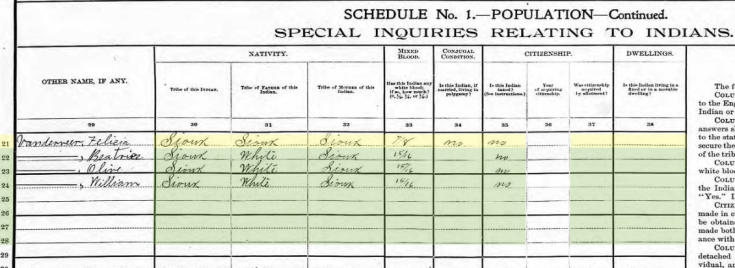 SCHEDULE No. 1.—POPULATION—Continued.
SPECIAL INQUIRIES RELATING TO INDIANS.
OTHER NAME, IF ANY.
NATIVITY.
MIXED BLOOD.
CONJUGAL CONDITION.
CITIZENSHIP.
DWELLINGS.
Tribe of this Indian.
Tribe of FATHER of this Indian.
Tribe of MOTHER of this Indian.
Has this Indian any white blood; if so, how much? (0, ½, ¼, or ⅛.)
Is this Indian, if married, living in polygamy?
Is this Indian taxed? (See instructions.)
Year of acquiring citizenship.
Was citizenship acquired by allotment?
Is this Indian living in a fixed or in a movable dwelling?
29 30 31 32 33 34 35 36 37 38
21 Felicia Sioux Sioux Sioux 7/8 no no
22 , Beatrice Sioux White Sioux 15/16 no
23 , Olive Sioux White Sioux 15/16 no
24 , William Sioux White Sioux 15/16 no
25
26
27
28
29
The f
COLU
to the Eng
Indian or
COLU
answers sh
to the stat
secure the
of the trib
COLU
white bloo
COLU
the Indian
"Yes." I
CITIZ
made in c
be obtaine
made both
ance with
COLU
detached
vidual, an